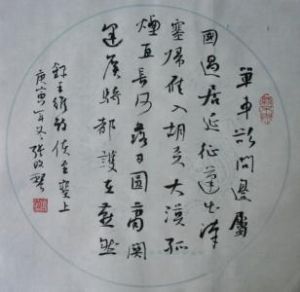 單車欲問邊屬
國過居延征蓬出漢
塞歸雁入胡天大漠孤
煙直長河落日圓蕭關
逢候騎都護在燕然
錄王維詩使至塞上
庚寅年張改琴